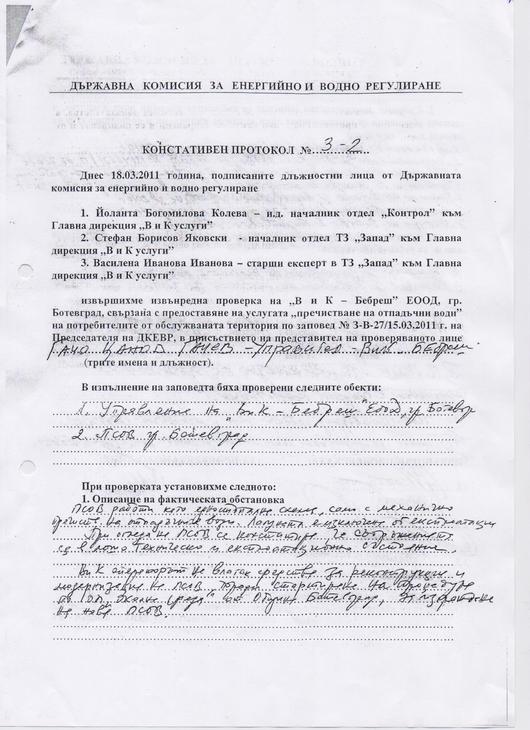 ДЪРЖАВНА КОМИСИЯ ЗА ЕНЕРГИЙНО И ВОДНО РЕГУЛИРАНЕ
КОНСТАТИВЕН ПРОТОКОЛ №...3-2.....
Днес 18.03.2011 година, подписаните длъжностни лица от Държавната
комисия за енергийно и водно регулиране
1. Йоланта Богомилова Колева – и.д. началник отдел „Контрол” към
Главна дирекция „В и К услуги”
2. Стефан Борисов Яковски - началник отдел ТЗ „Запад” към Главна
дирекция „В и К услуги”
3. Василена Иванова Иванова – старши експерт в ТЗ „Запад” към Главна
дирекция „В и К услуги”
извършихме извънредна проверка на „В и К – Бебреш” ЕООД, гр.
Ботевград, свързана с предоставяне на услугата „пречистване на отпадъчни води”
на потребителите от обслужваната територия по заповед № З-В-27/15.03.2011 г. на
Председателя на ДКЕВР, в присъствието на представител на проверяваното лице
ЦАНОВ - Управител - ВиК Бебреш
(трите имена и длъжност).
В изпълнение на заповедта бяха проверени следните обекти:
1. Управление на "ВиК - Бебреш" ЕООД, гр. Ботевгр
2. ПСОВ гр. Ботевград
При проверката установихме следното:
1. Описание на фактическата обстановка
ПСОВ работи като схема, само с механично
на отпадъчните води. е изключено от експлоатация
При оглед на ПСОВ се констатира, че съоръженията
са в лошо техническо и експлоатационно състояние.
ВиК операторът не влага средства за реконструкция и
модернизация на ПСОВ, поради стартиране на процедура
по ОП "Околна среда" от Община Ботевград, за изграждане
на нова ПСОВ.